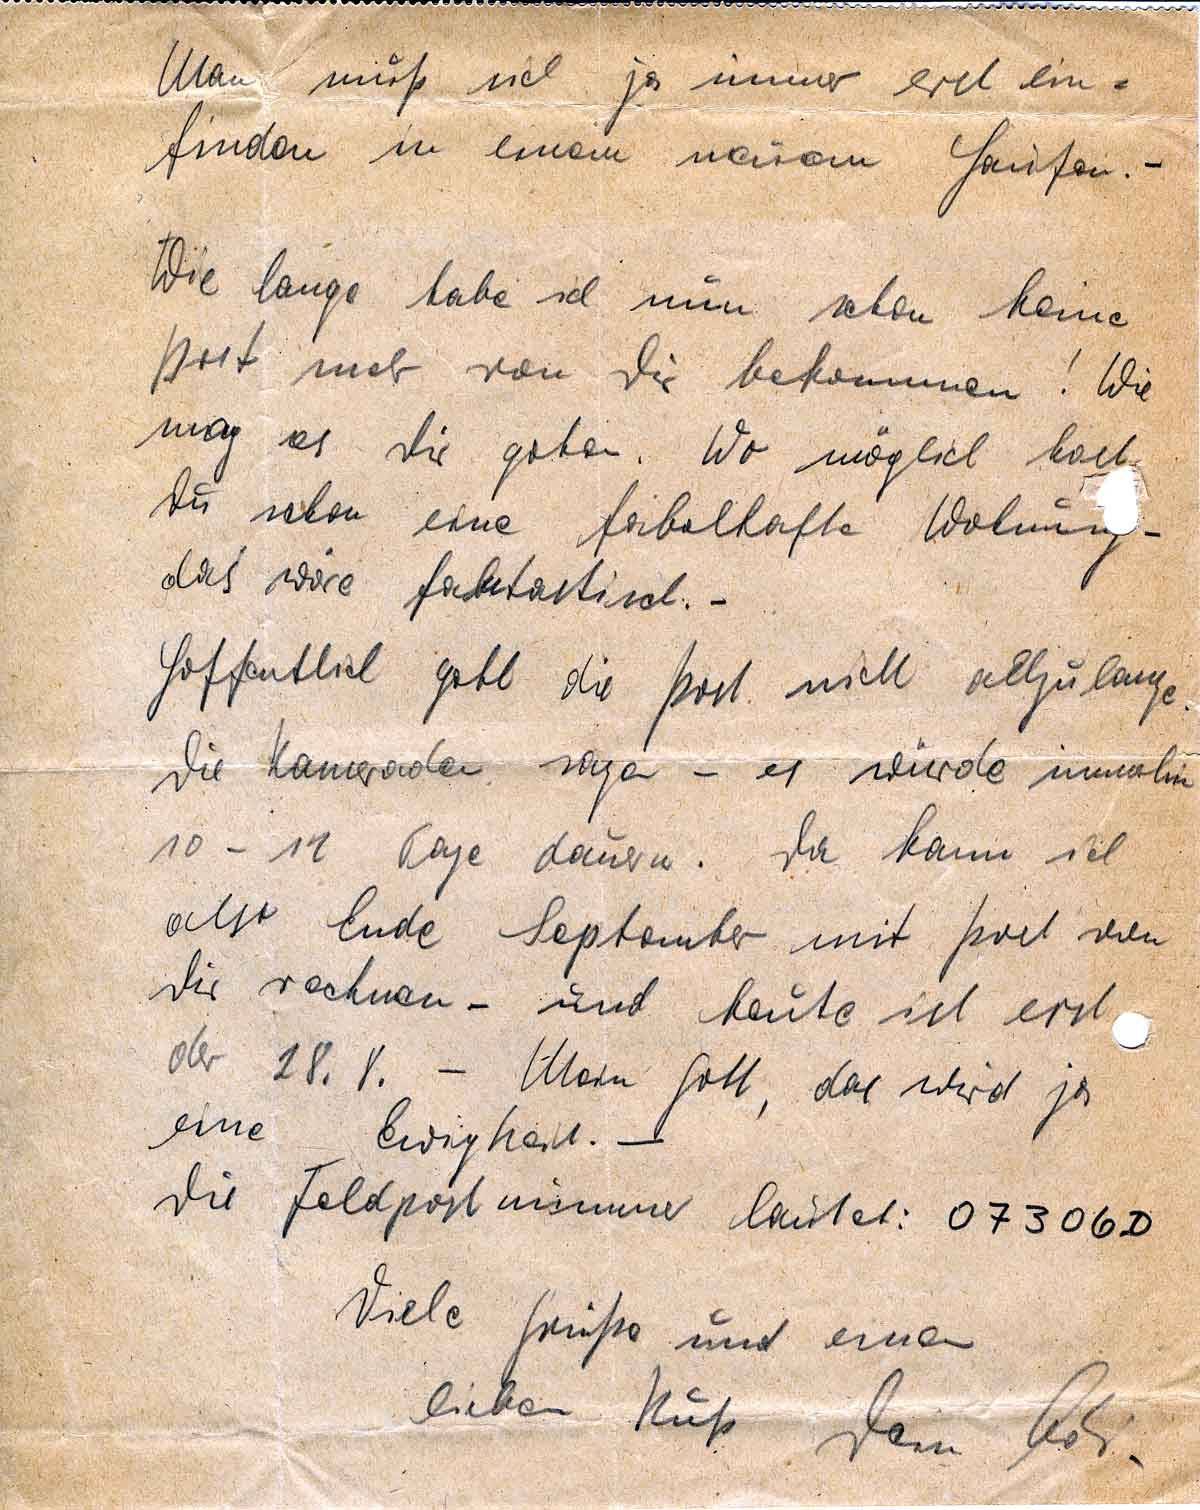 Man muß sich ja immer erst ein-
finden in einem neuen Haufen. -
Wie lange habe ich nun schon keine
Post mehr von Dir bekommen! Wie
mag es Dir gehen. Wo möglich hast
Du schon eine fabelhafte Wohnung -
das wäre fantastisch. -
Hoffentlich geht die Post nicht allzulange.
Die Kameraden sagen - es würde immerhin
10 - 12 Tage dauern. Da kann ich
also Ende September mit Post von
Dir rechnen - und heute ist erst
der 28. 8. - Mein Gott, das wird ja
eine Ewigkeit. -
Die Feldpostnummer lautet: 07306D
Viele Grüße und einen
lieben Kuß Dein